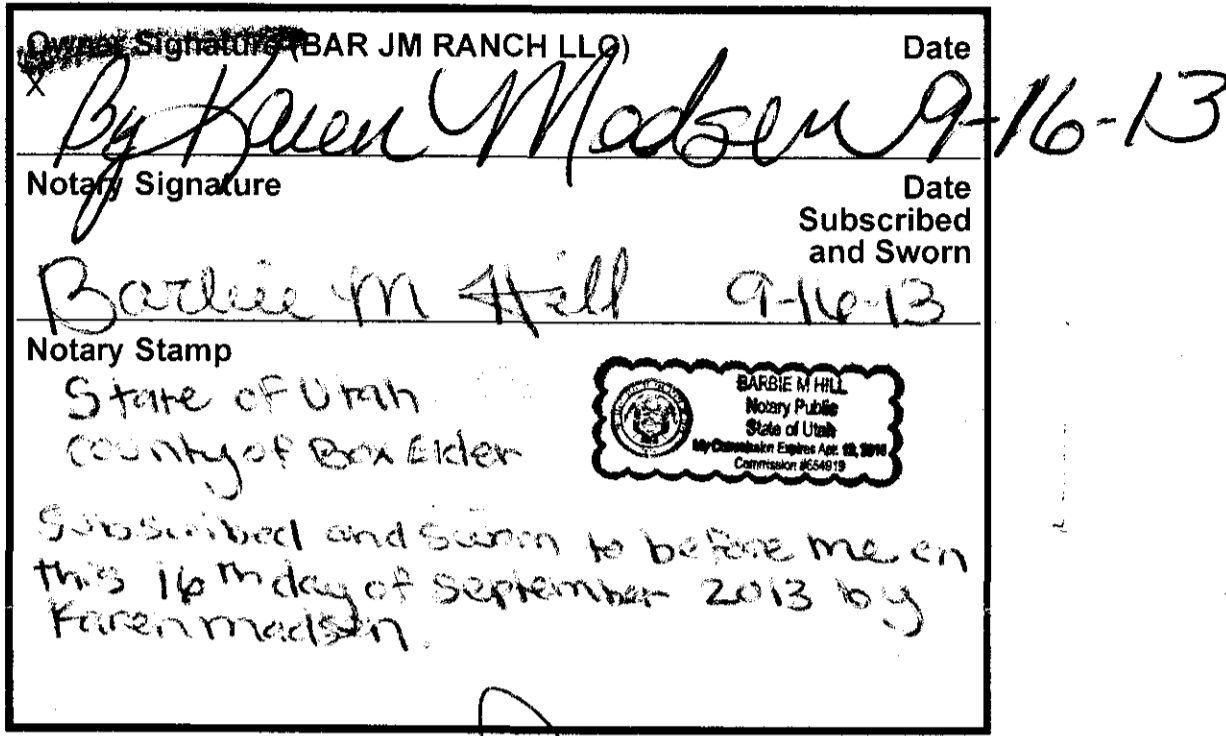 Owner Signature (BAR JM RANCH LLC) Date
X By Karen Madsen 9-16-13
Notary Signature Date
Subscribed
and Sworn
Barbie M Hill 9-16-13
Notary Stamp
State of Utah
County of Box Elder
BARBIE M HILL
Notary Public
State of Utah
My Commission Expires Apr.
Commission #654919
Subscribed and sworn to before me on
this 16th day of September 2013 by
Karen Madsen.